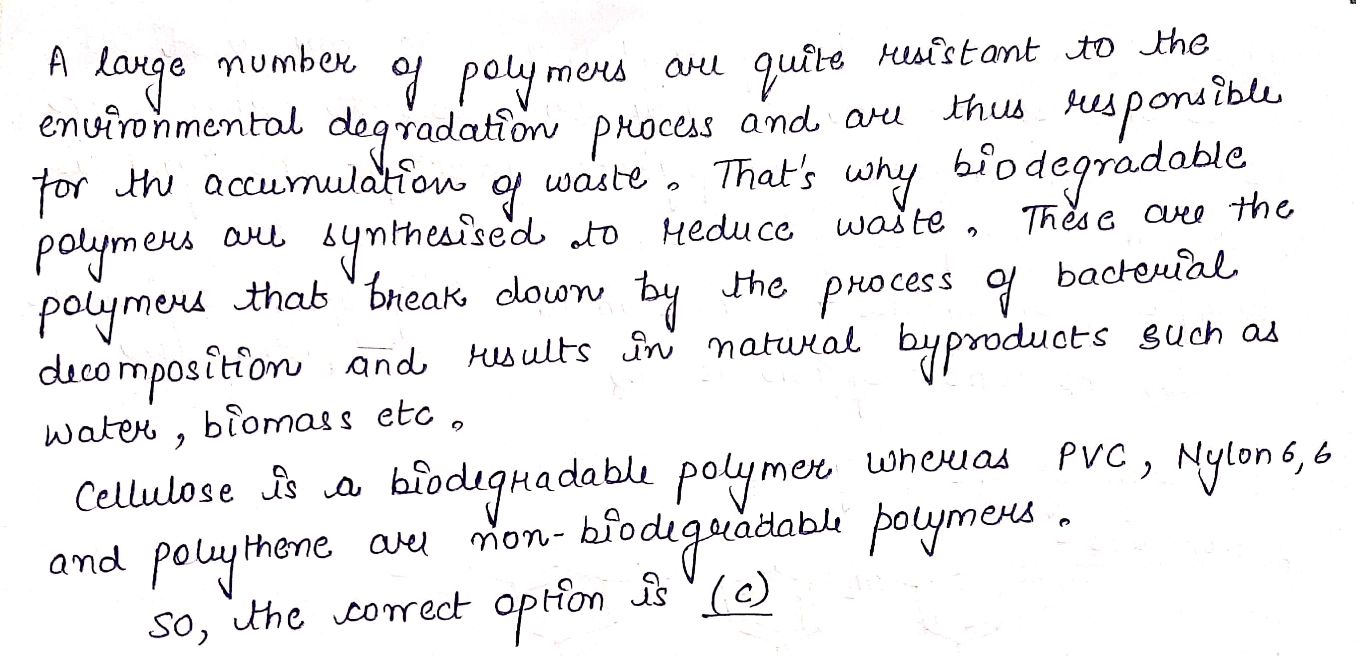 A large number of polymers are quite resistant to the
environmental degradation process and are thus responsible
for the accumulation of waste. That's why biodegradable
polymers are synthesised to reduce waste. These are the
polymers that break down by the process of bacterial
decomposition and results in natural byproducts such as
water, biomass etc.
Cellulose is a biodegradable polymer whereas PVC, Nylon 6,6
and polythene are non-biodegradable polymers.
So, the correct option is (c)